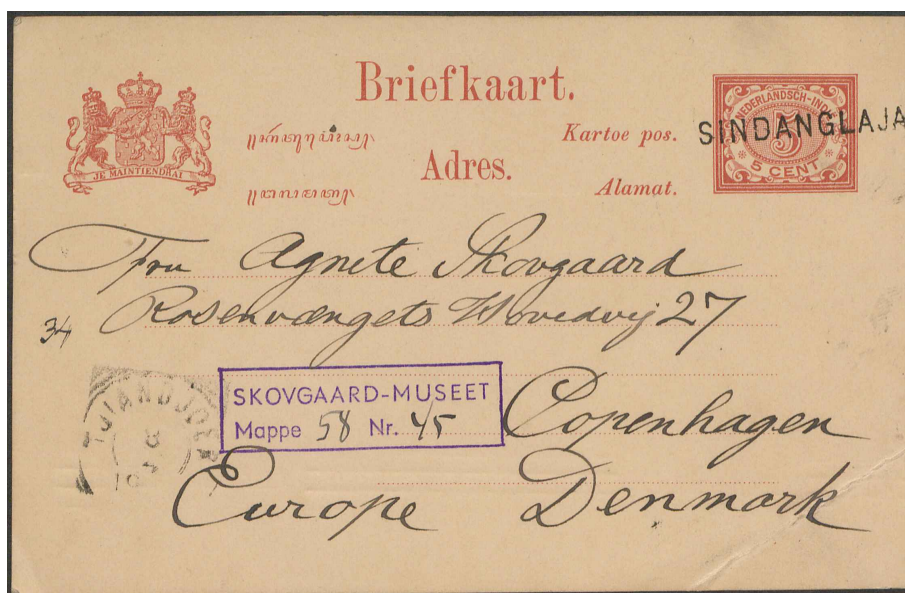 Briefkaart.
Kartoe pos.
Adres.
Alamat.
JE MAINTIENDRAI
NEDERLANDSCH-INDIË
5
5 CENT
SINDANGLAJA
Fru Agnete Skovgaard
Rosenvængets Hovedvej 27
34
TJIANDJOER
SKOVGAARD-MUSEET
Mappe 58 Nr. 45
Copenhagen
Europe Denmark